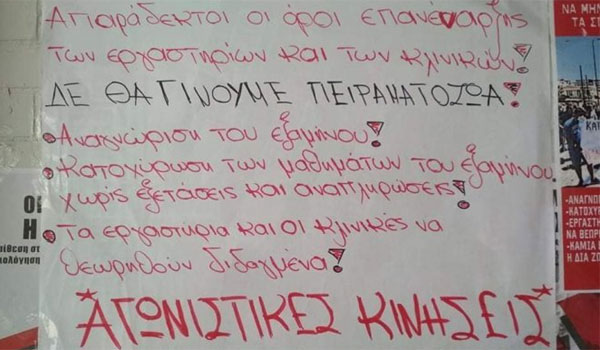 Απαράδεκτοι οι όροι επανέναρξης
των εργαστηρίων και των κλινικών!
ΔΕ ΘΑ ΓΙΝΟΥΜΕ ΠΕΙΡΑΜΑΤΟΖΩΑ!
• Αναγνώριση του εξαμήνου!
• Κατοχύρωση των μαθημάτων του εξαμήνου
χωρίς εξετάσεις και αναπληρώσεις!
• Τα εργαστήρια και οι κλινικές να
θεωρηθούν διδαγμένα!
*ΑΓΩΝΙΣΤΙΚΕΣ ΚΙΝΗΣΕΙΣ*
ΟΙ
Η
ίθεση στ
κολόγηση
ΝΑ ΜΗΝ
ΤΑ Σ
-ΑΝΑΓΝΩ
-ΚΑΤΟΧΥ
-ΕΡΓΑΣΤΗ
ΝΑ ΘΕΩΡ
-ΚΑΜΙΑ
Η ΔΙΑ ΖΩ